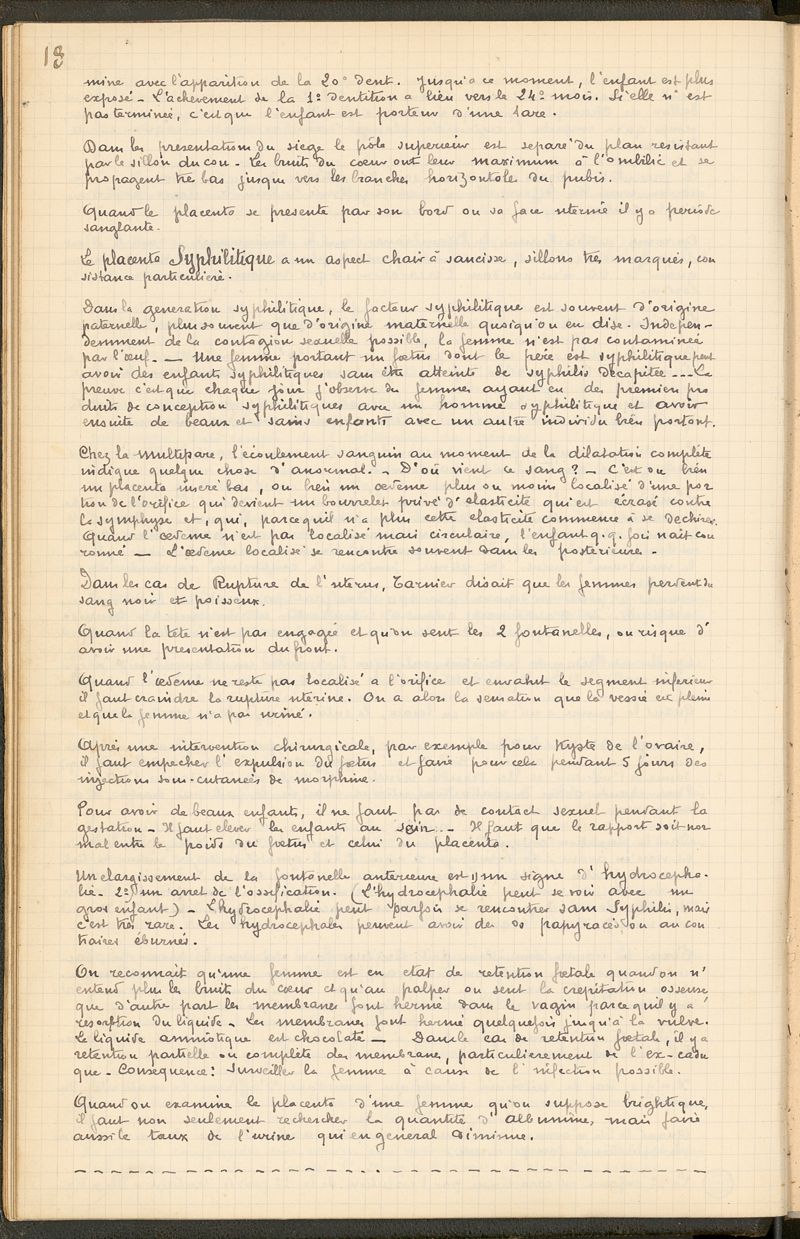 18
mine avec l'apparition de la 20e dent. Jusqu'a ce moment, l'enfant est plus
exposé - L'achèvement de la 1e dentition a lieu vers le 24e mois. Si elle n'est
pas terminée, c'est que l'enfant est porteur d'une tare.
Dans les presentations du siege le pôle superieur est separé du plan resistant
par le sillon du cou - Les bruits du coeur ont leur maximum à l'ombilic et se
propagent très bas jusque vers les branches horizontale du pubis.
Quand le placenta se presente par son bord ou sa face uterine il y a periode
sanglante.
Le placenta Syphilitique a un aspect chair à saucisse, sillons très marqués, con
sistance particulière.
Dans la generation syphilitique, le facteur syphilitique est souvent d'origine
paternelle, plus souvent que d'origine maternelle quoiqu'on en dise. Indepen-
demment de la contagion sexuelle possible, la femme n'est pas contaminée
par l'œuf. — Une femme portant un fœtus dont le père est syphilitique peut
avoir des enfants syphilitiques sans être atteints de syphilis décapitée --- La
preuve c'est que chaque jour j'observe des femmes ayant eu des premiers pro
duits de conception syphilitiques avec un homme syphilitique et avoir
ensuite de beaux et sains enfants avec un autre individu bien portant.
Chez la multipare, l'écoulement sanguin au moment de la dilatation complète
indique quelque chose d'anormal. - D'où vient ce sang? - C'est ou bien
un placenta inseré bas, ou bien un œdeme plus ou moins localisé d'une por
tion de l'orifice qui devient un bourrelet privé d'elasticité qui est écrasé contre
la symphyse et, qui, parcequ'il n'a plus cette elasticité commence à se dechirer.
Quand l'œdeme n'est pas localisé mais circulaire, l'enfant q.q. fois nait cou
ronné — L'œdeme localisé se rencontre souvent dans les posterieures -
Dans les cas de Rupture de l'uterus, Tarnier disait que les femmes perdent du
sang noir et poisseux.
Quand la tête n'est pas engagée et qu'on sent les 2 fontanelles, on risque d'
avoir une presentation du front.
Quand l'œdeme ne reste pas localisé a l'orifice et envahit le segment inferieur
il faut craindre la rupture uterine. On a alors la sensation que la vessie est pleine
et que la femme n'a pas uriné.
Après une intervention chirurgicale, par exemple pour Kyste de l'ovaire,
il faut empecher l'expulsion du fœtus et faire pour cela pendant 5 jours des
injections sous-cutanées de morphine.
Pour avoir de beaux enfants, il ne faut pas de contact sexuel pendant la
gestation - Il faut elever les enfants au sein. - Il faut que le rapport soit nor
mal entre le poids du fœtus et celui du placenta.
Un elargissement de la fontanelle anterieure est 1) un signe d'hydrocepha-
lie - 2° un arret de l'ossification. (L'hydrocephalie peut se voir avec un
gros enfant) - L'hydrocephalie peut parfois se rencontrer sans Syphilis, mais
c'est très rare. Les hydrocephales peuvent avoir des os papyracés ou au con
traires éburnés.
On reconnait qu'une femme est en etat de retention fœtale quand on n'
entend plus les bruits du cœur et qu'au palper on sent la crepitation osseuse
que d'autre part les membranes font hernie dans le vagin parce qu'il y a
resorption du liquide. Les membranes font hernie quelquefois jusqu'à la vulve.
Le liquide amniotique est chocolaté — Dans le cas de retention fœtale, il y a
retention partielle ou complète des membrane, particulierement de l'ex-cadu
que - Consequence: Surveiller la femme à cause de l'infection possible.
Quand on examine le placenta d'une femme qu'on suppose brightique,
il faut non seulement rechercher la quantité d'albumine, mais faire
aussi le taux de l'urine qui en general diminue.